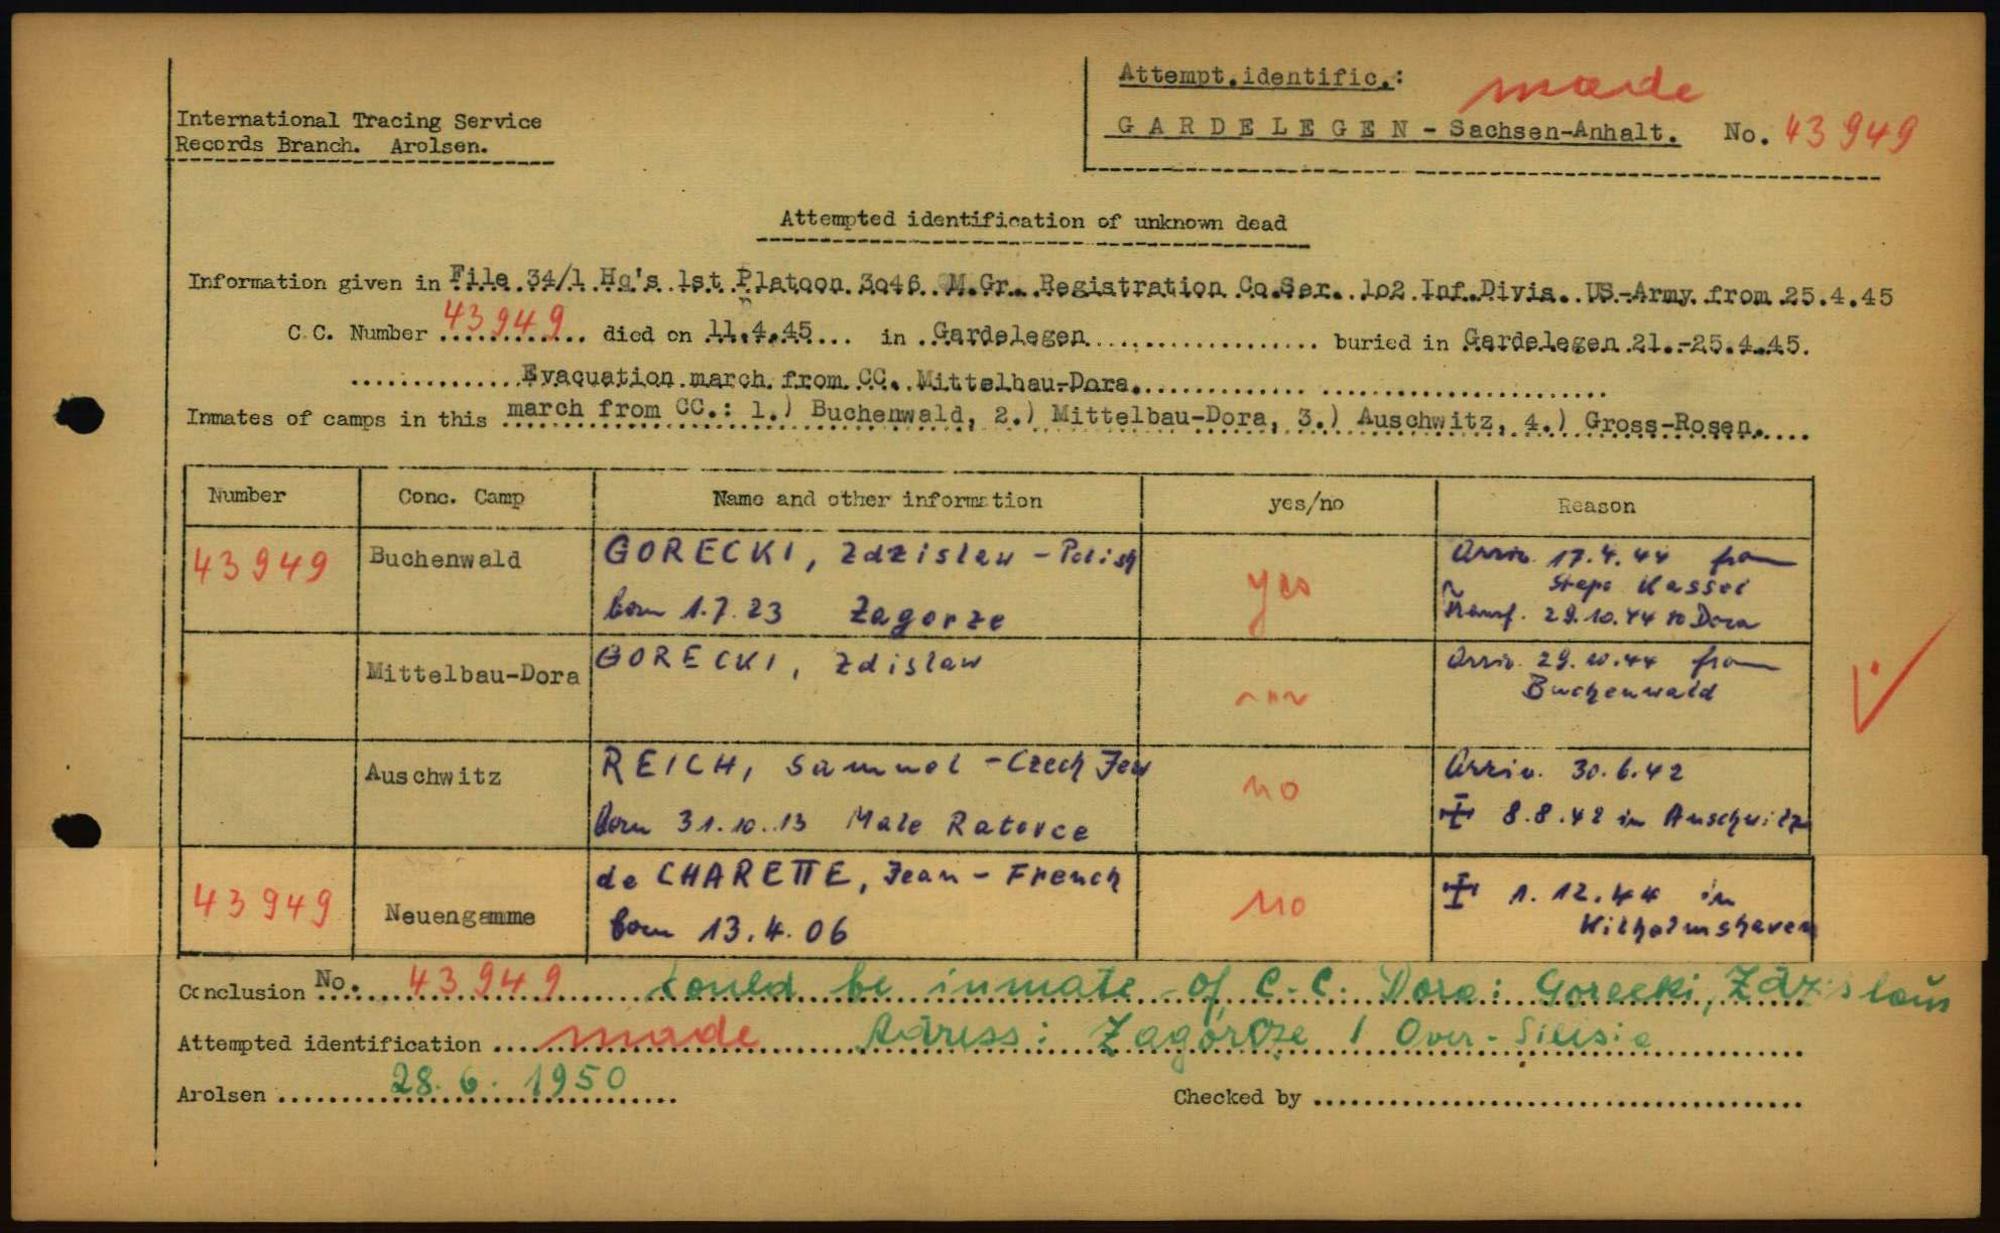 Attempt.identific.: made
International Tracing Service
Records Branch. Arolsen.
GARDELEGEN - Sachsen-Anhalt. No. 43949
Attempted identification of unknown dead
Information given in File 34/1 Hq's 1st Platoon 3o46 M.Gr. Registration Co.Ser. 1o2 Inf.Divis. US-Army from 25.4.45
C.C. Number 43949 died on 11.4.45... in Gardelegen buried in Gardelegen 21.-25.4.45.
Evacuation march from CC. Mittelbau-Dora.
Inmates of camps in this march from CC.: 1.) Buchenwald, 2.) Mittelbau-Dora, 3.) Auschwitz, 4.) Gross-Rosen.
Number Conc. Camp Name and other information yes/no Reason
43949 Buchenwald GORECKI, Zdzislaw - Polish yes Arriv. 17.4.44 from
Stapo Kassel
born 1.7.23 Zagorze Transf. 29.10.44 to Dora
Mittelbau-Dora GORECKI, Zdislaw Arriv. 29.10.44 from
Buchenwald
Auschwitz REICH, Samuel - Czech Jew no Arriv. 30.6.42
born 31.10.13 Male Ratovce 8.8.42 in Auschwitz
43949 Neuengamme de CHARETTE, Jean - French no 1.12.44 in
born 13.4.06 Wilhelmshaven
Conclusion No. 43949 could be inmate of C.C. Dora: Gorecki, Zdzislaus
Attempted identification made Adress: Zagorze / Over-Silesia
Arolsen 28.6.1950 Checked by